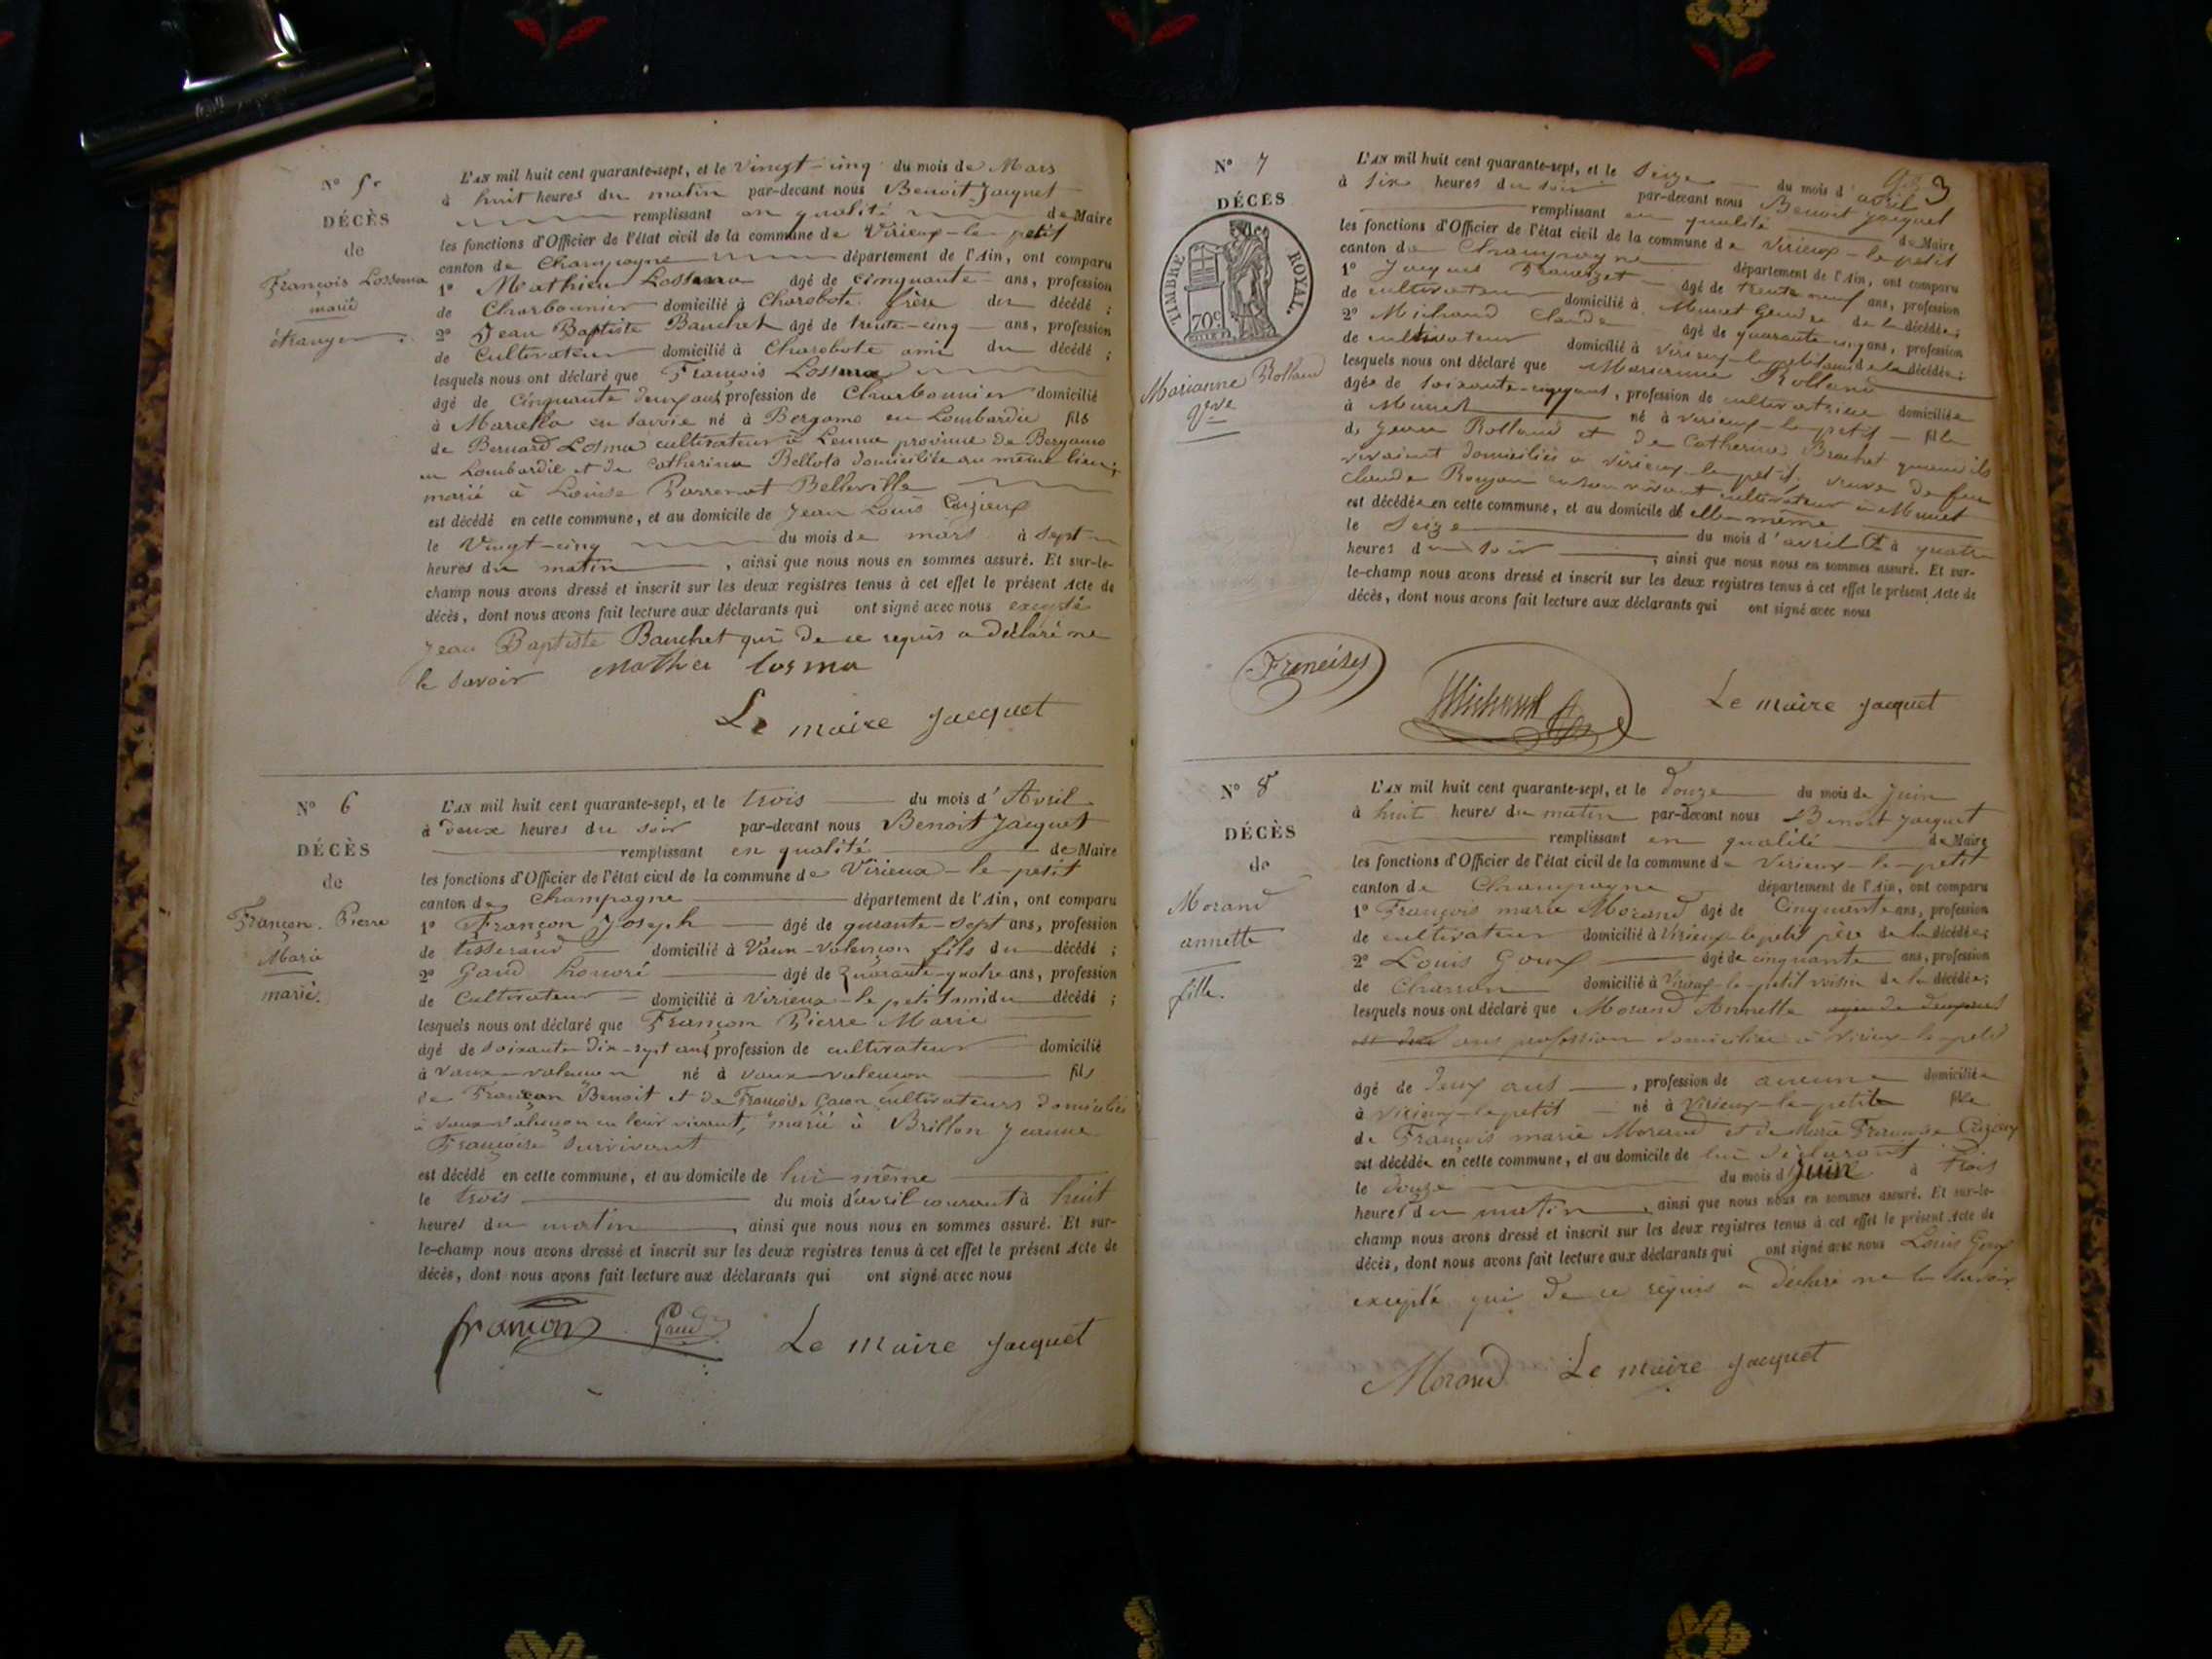 N° 5
DÉCÈS
de
François Lossma
marié
étranger
L'AN mil huit cent quarante-sept, et le vingt-cinq du mois de Mars
à huit heures du matin par-devant nous Benoit Jacquet
remplissant en qualité de Maire
les fonctions d'Officier de l'état civil de la commune de Virieux-le-petit
canton de Champagne département de l'Ain, ont comparu
1° Mathieu Lossma âgé de cinquante ans, profession
de Charbonnier domicilié à Charobote frère du décédé ;
2° Jean Baptiste Bauchet âgé de trente-cinq ans, profession
de Cultivateur domicilié à Charobote ami du décédé ;
lesquels nous ont déclaré que François Lossma
âgé de Cinquante deux ans profession de Charbonnier domicilié
à en Savoie né à Bergamo en Lombardie fils
de Bernard Losma cultivateur à Lenna province de Bergamo
en Lombardie et de Catherina Bellota domiciliée au même lieu ;
marié à Louise Belleville
est décédé en cette commune, et au domicile de Jean Louis Cuzieux
le Vingt-cinq du mois de mars à sept
heures du matin, ainsi que nous nous en sommes assuré. Et sur-le-
champ nous avons dressé et inscrit sur les deux registres tenus à cet effet le présent Acte de
décès, dont nous avons fait lecture aux déclarants qui ont signé avec nous excepté
Jean Baptiste Bauchet qui de ce requis a déclaré ne
le savoir Mathia losma
Le maire Jacquet
N° 6
DÉCÈS
de
Françon Pierre
Marie
marié.
L'AN mil huit cent quarante-sept, et le trois du mois d'Avril
à deux heures du soir par-devant nous Benoit Jacquet
remplissant en qualité de Maire
les fonctions d'Officier de l'état civil de la commune de Virieux-le-petit
canton de Champagne département de l'Ain, ont comparu
1° Françon Joseph âgé de quarante-sept ans, profession
de tisserand domicilié à Vaux-valençon fils du décédé ;
2° Gaud honoré âgé de Quarante-quatre ans, profession
de Cultivateur domicilié à Virieux-le petit ami du décédé ;
lesquels nous ont déclaré que Françon Pierre Marie
âgé de soixante Dix-sept ans profession de cultivateur domicilié
à vaux-valençon né à vaux-valençon fils
de Françon Benoit et de Françoise cultivateurs domiciliés
à vaux valençon en leur vivant, marié à Brillon Jeanne
Françoise survivant
est décédé en cette commune, et au domicile de lui-même
le trois du mois d'avril courant à huit
heures du matin, ainsi que nous nous en sommes assuré. Et sur-
le-champ nous avons dressé et inscrit sur les deux registres tenus à cet effet le présent Acte de
décès, dont nous avons fait lecture aux déclarants qui ont signé avec nous
françon Gaud Le Maire Jacquet
3
N° 7
DÉCÈS
TIMBRE ROYAL.
70c
Marianne Rolland
Vve
L'AN mil huit cent quarante-sept, et le Seize du mois d'avril
à six heures du soir par-devant nous Benoit Jacquet
remplissant en qualité de Maire
les fonctions d'Officier de l'état civil de la commune de Virieux-le petit
canton de Champagne département de l'Ain, ont comparu
1° Jacques âgé de trente neuf ans, profession
de cultivateur domicilié à Munet Gendre de la décédée ;
2° Michaud Claude âgé de quarante-cinq ans, profession
de cultivateur domicilié à Virieux-le-petit ami de la décédée ;
lesquels nous ont déclaré que Marianne Rolland
âgée de soixante-cinq ans, profession de cultivatrice domiciliée
à Munet né à virieux-le-petit fille
de Rolland et de Catherine Brachet quand ils
vivaient domiciliés à Virieux-le-petit, veuve de feu
Claude en son vivant cultivateur à Munet
est décédée en cette commune, et au domicile de elle-même
le Seize du mois d'avril à quatre
heures du soir, ainsi que nous nous en sommes assuré. Et sur-
le-champ nous avons dressé et inscrit sur les deux registres tenus à cet effet le présent Acte de
décès, dont nous avons fait lecture aux déclarants qui ont signé avec nous
Michaud Le maire Jacquet
N° 8
DÉCÈS
de
Morand
annette
fille.
L'AN mil huit cent quarante-sept, et le Douze du mois de Juin
à huit heures du matin par-devant nous Benoit Jacquet
remplissant en qualité de Maire
les fonctions d'Officier de l'état civil de la commune de Virieux-le-petit
canton de Champagne département de l'Ain, ont comparu
1° François marie Morand âgé de Cinquante ans, profession
de cultivateur domicilié à Virieux-le petit père de la décédée ;
2° Louis Goux âgé de cinquante ans, profession
de Charron domicilié à Virieux-le-petit voisin de la décédée ;
lesquels nous ont déclaré que Morand Annette
profession domiciliée à Virieux-le-petit
âgé de deux ans, profession de aucune domiciliée
à Virieux-le petit né à Virieux-le-petit fille
de François marie Morand et de Marie Françoise
est décédée en cette commune, et au domicile de lui déclarant
le douze du mois d Juin à trois
heures du matin, ainsi que nous nous en sommes assuré. Et sur-le-
champ nous avons dressé et inscrit sur les deux registres tenus à cet effet le présent Acte de
décès, dont nous avons fait lecture aux déclarants qui ont signé avec nous Louis Goux
excepté qui de ce requis a déclaré ne le savoir
Morand Le maire Jacquet